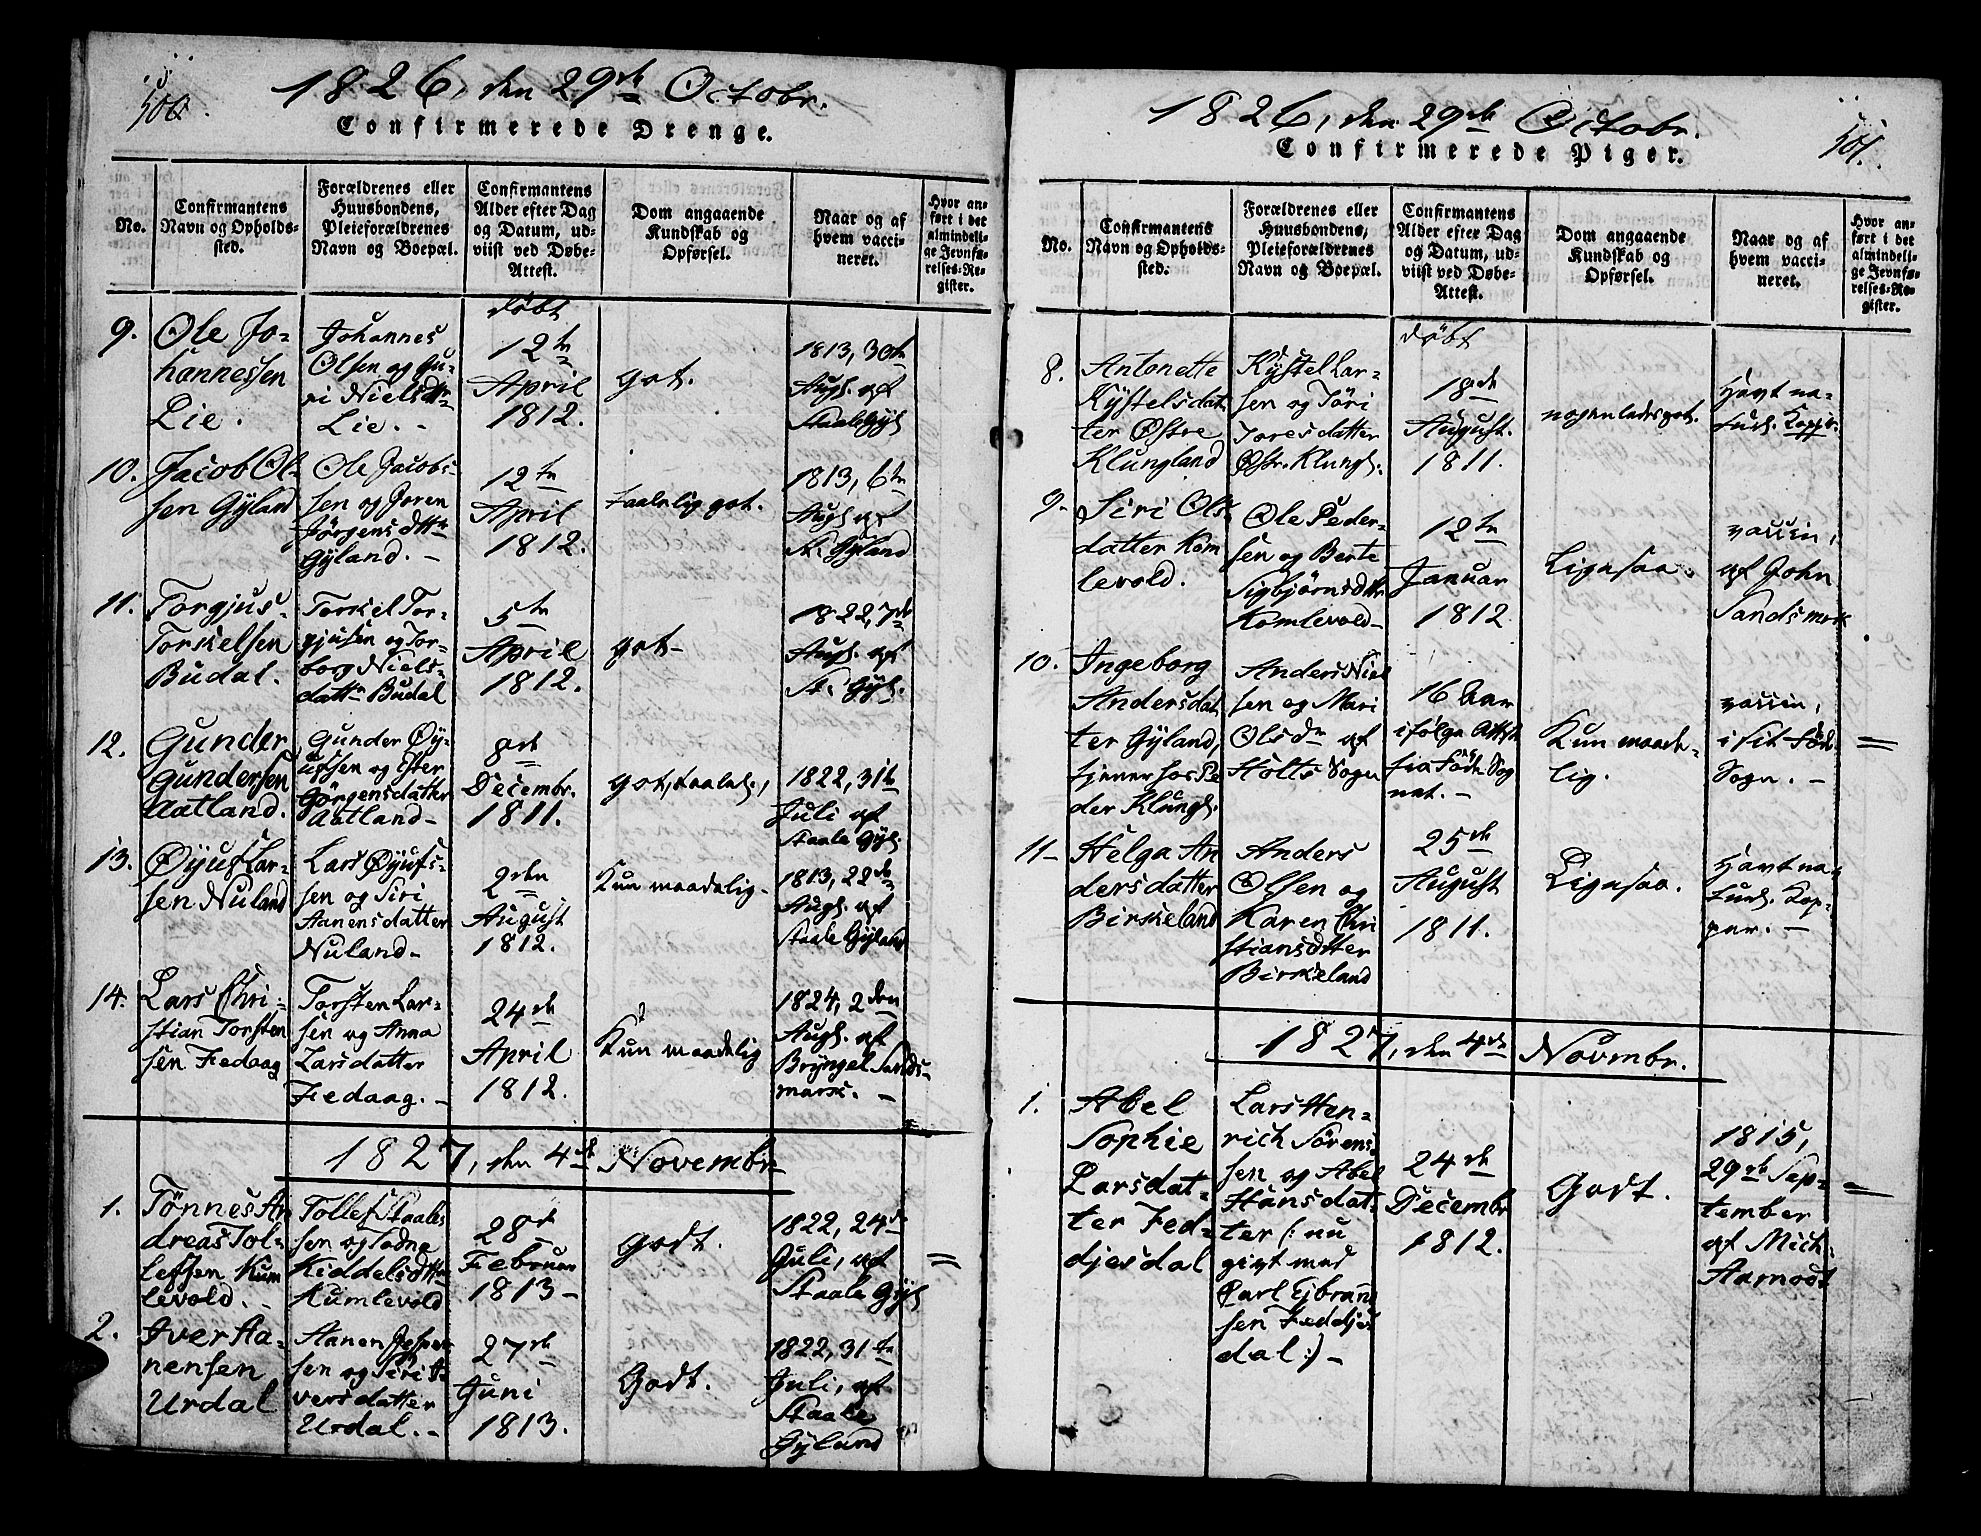 500.
1826, den 29de Octobr.
Confirmerede Drenge.
No.
Confirmantens
Navn og Opholds-
sted.
Forældrenes eller
Huusbondens,
Pleieforældrenes
Navn og Boepæl.
Confirmantens
Alder efter Dag
og Datum, ud-
viist ved Døbe-
Attest.
Dom angaaende
Kundskab og
Opførsel.
Naar og af
hvem vacci-
neret.
Hvor an-
ført i det
almindeli-
ge Jevnfø-
relses-Re-
gister.
9.
Ole Jo-
hannessen
Lie.
Johannes
Olsen og Gu-
ri Nielsdtr
Lie. -
døbt
12te
April
1812.
got.
1813, 30te
Augs. af
Staale Gyl.
10.
Jacob Ol-
sen Gyland
Ole Jacob-
sen og Joren
Jörgensdttr
Gyland. -
12te
April
1812.
taalelig got.
1813, 6te
Augs. af
St. Gyland
11.
Torgjus
Torkelsen
Budal.
Torkel Tor-
gjusen og Tor-
borg Niels-
dattr Budal
5te
April
1812.
got -
1822, 7de
Augs. af
St. Gyl.
12.
Gunder
Gundersen
Aatland.
Gunder Øy-
ufsen og Ester
Görgensdatter
Aatland -
8de
Decembr.
1811.
got, taalel.,
1822, 31te
Juli af
Staale Gyl.
13.
Øyuf Lar-
sen Nuland
Lars Øyufs-
sen og Siri
Aanensdatter
Nuland -
2den
August
1812.
Kun maadelig -
1813, 22de
Augs. af
Staale Gyland
14.
Lars Chri-
stian Torsten
sen Fedaag
Torsten Lar-
sen og Anna
Larsdatter
Fedaag. -
24de
April
1812.
Kun maadelig
1824, 2den
Augs. af
Bryngel Sands-
mark. -
1827, den 4de Novembr
1.
Tönnes An
dreas Tol-
lefsen Kum
levold. -
Tollef Staales
sen og Todne
Kiddelsdttr
Kumlevold
28de
Februar
1813 -
Godt.
1822, 24de
Juli, af
Staale Gyl
=
2.
Iver Aa-
nensen
Urdal
Aanen Jesper
sen og Siri I-
versdatter
Urdal. -
27de
Juni
1813.
Godt.
1822, 31te
Juli, af
Staale
Gyland
501.
1826, den 29de Octobr.
Confirmerede Piger.
No.
Confirmantens
Navn og Opholds-
sted.
Forældrenes eller
Huusbondens,
Pleieforældrenes
Navn og Boepæl.
Confirmantens
Alder efter Dag
og Datum, ud-
viist ved Døbe-
Attest.
Dom angaaende
Kundskab og
Opførsel.
Naar og af
hvem vacci-
neret.
Hvor an-
ført i det
almindeli-
ge Jevnfø-
relses-Re-
gister.
8.
Antonette
Kystelsdat-
ter Østre
Klungland
Kystel Lar-
sen og Töri
Toresdatter
Østr. Klungl.
døbt
18de
August.
1811.
nogenledes got.
Havt na-
turl. Kopper
9.
Siri Ols-
datter Kom
levold.
Ole Peder-
sen og Berte
Sigbjörnsdttr
Komlevold -
12te
Januar
1812
Ligesaa.
vaccin,
af John
Sandsmrk
10.
Ingeborg
Andersdat
ter Gyland,
tjener hos Pe
der Klungl.
Anders Niel
sen og Mari
Olsdr af
Holts Sogn
16 Aar
ifølge Attst
fra Föde Sog
net. -
Kun maade-
lig.
vaccin,
i sit Föde
Sogn. -
=
11 -
Helga An
dersdatter
Birkeland
Anders
Olsen og
Karen Chri
stiansdtter
Birkeland
25de
August
1811.
Ligesaa.
Havt na-
turl. Kop-
per. -
1827, den 4de Novmbr.
1.
Abel
Sophie
Larsdat-
ter Fed-
djesdal
Lars Hen-
rich Sörens
sen og Abel
Hansdat-
ter (: nu
givt med
Carl Ejbrand
sen Feddjes
dal :) -
24de
Decembr
1812.
Godt.
1815,
29de Sep-
tember
af Mich.
Aamodt
=